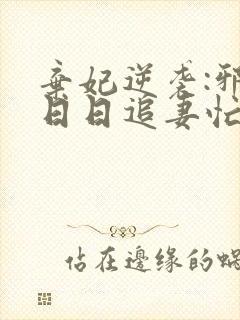 弃妃逆袭:邪
日日追妻忙
佔在邊缘的蝸